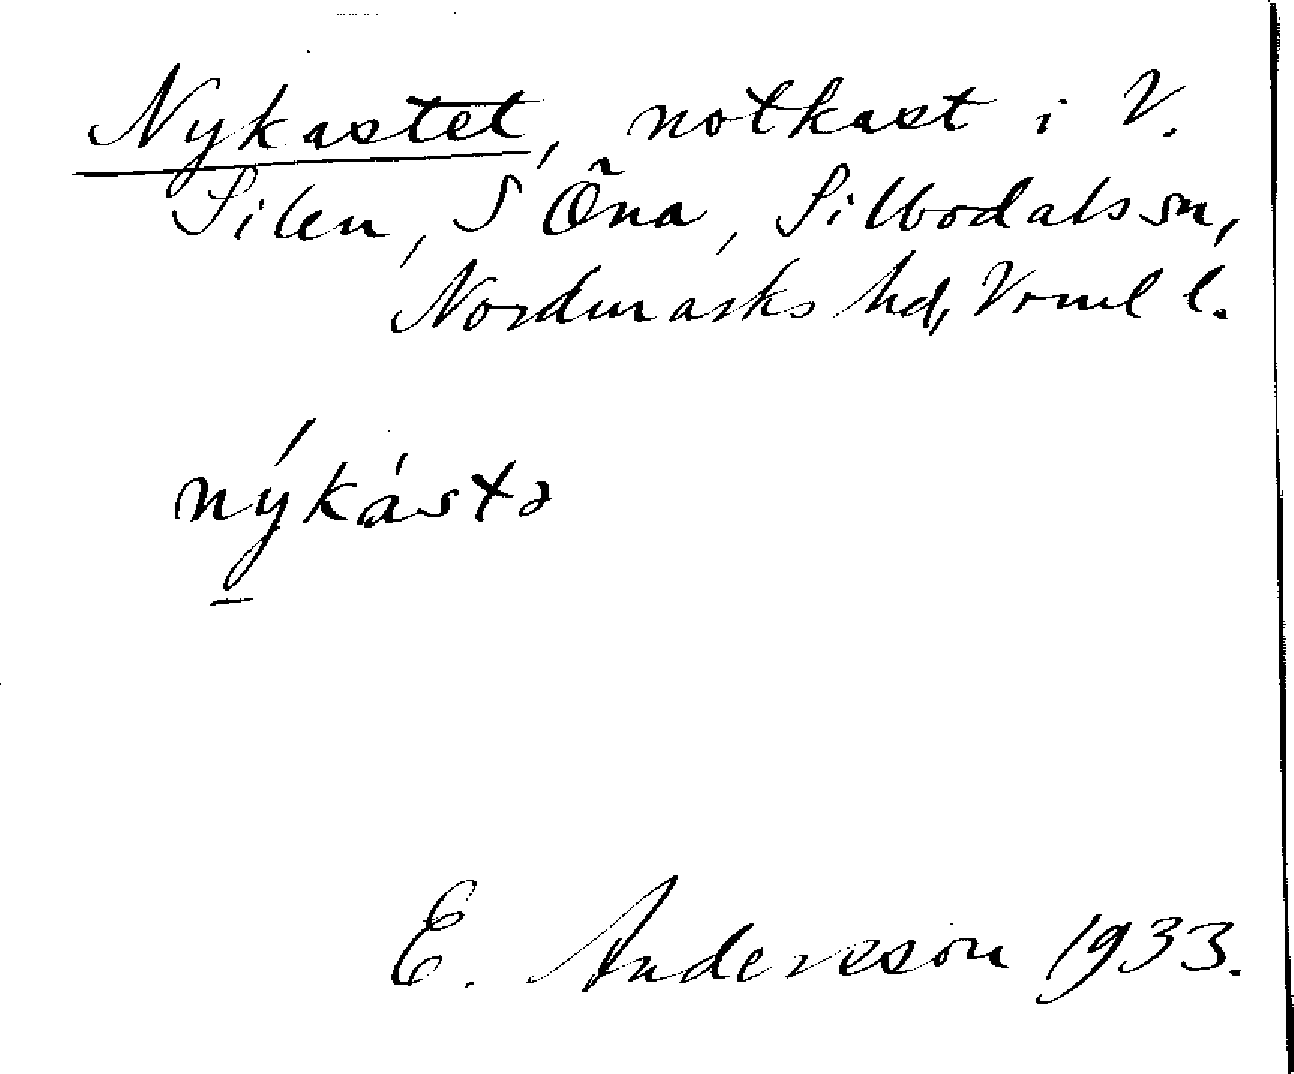 Nykastet, notkast i V.
Silen, S Õna, Silbodals sn,
Nordmarks hd, Vrml l.
nýkástə
E. Andersson 1933.